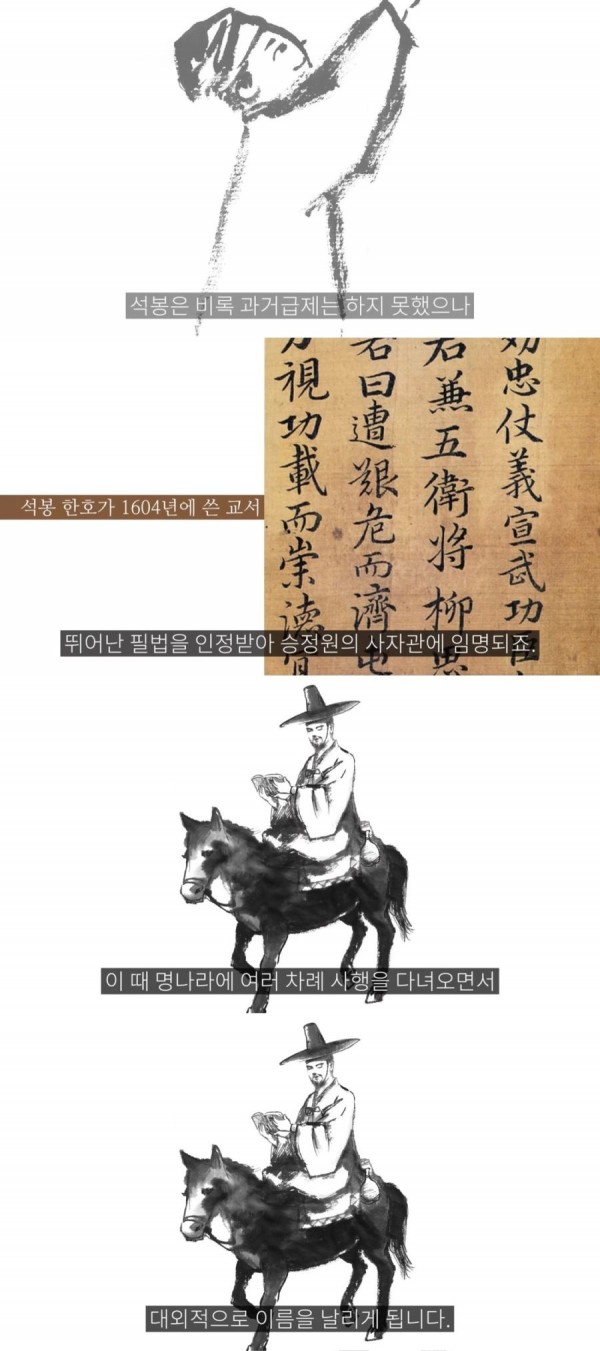 석봉은 비록 과거급제는 하지 못했으나
忠仗義宣武功
兼五衛將柳
若曰遭艱危而濟屯
視功載而崇德
석봉 한호가 1604년에 쓴 교서
뛰어난 필법을 인정받아 승정원의 사자관에 임명되죠.
이 때 명나라에 여러 차례 사행을 다녀오면서
대외적으로 이름을 날리게 됩니다.